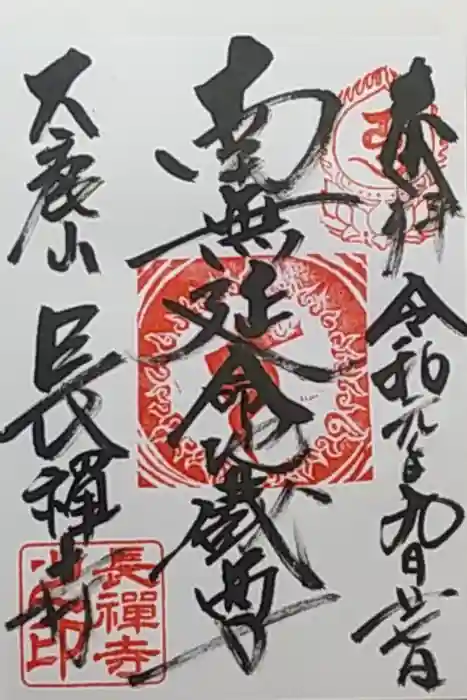 奉拝
令和元年九月廿一日
南無延命地蔵尊
大鹿山
長禅寺
長禪寺
印